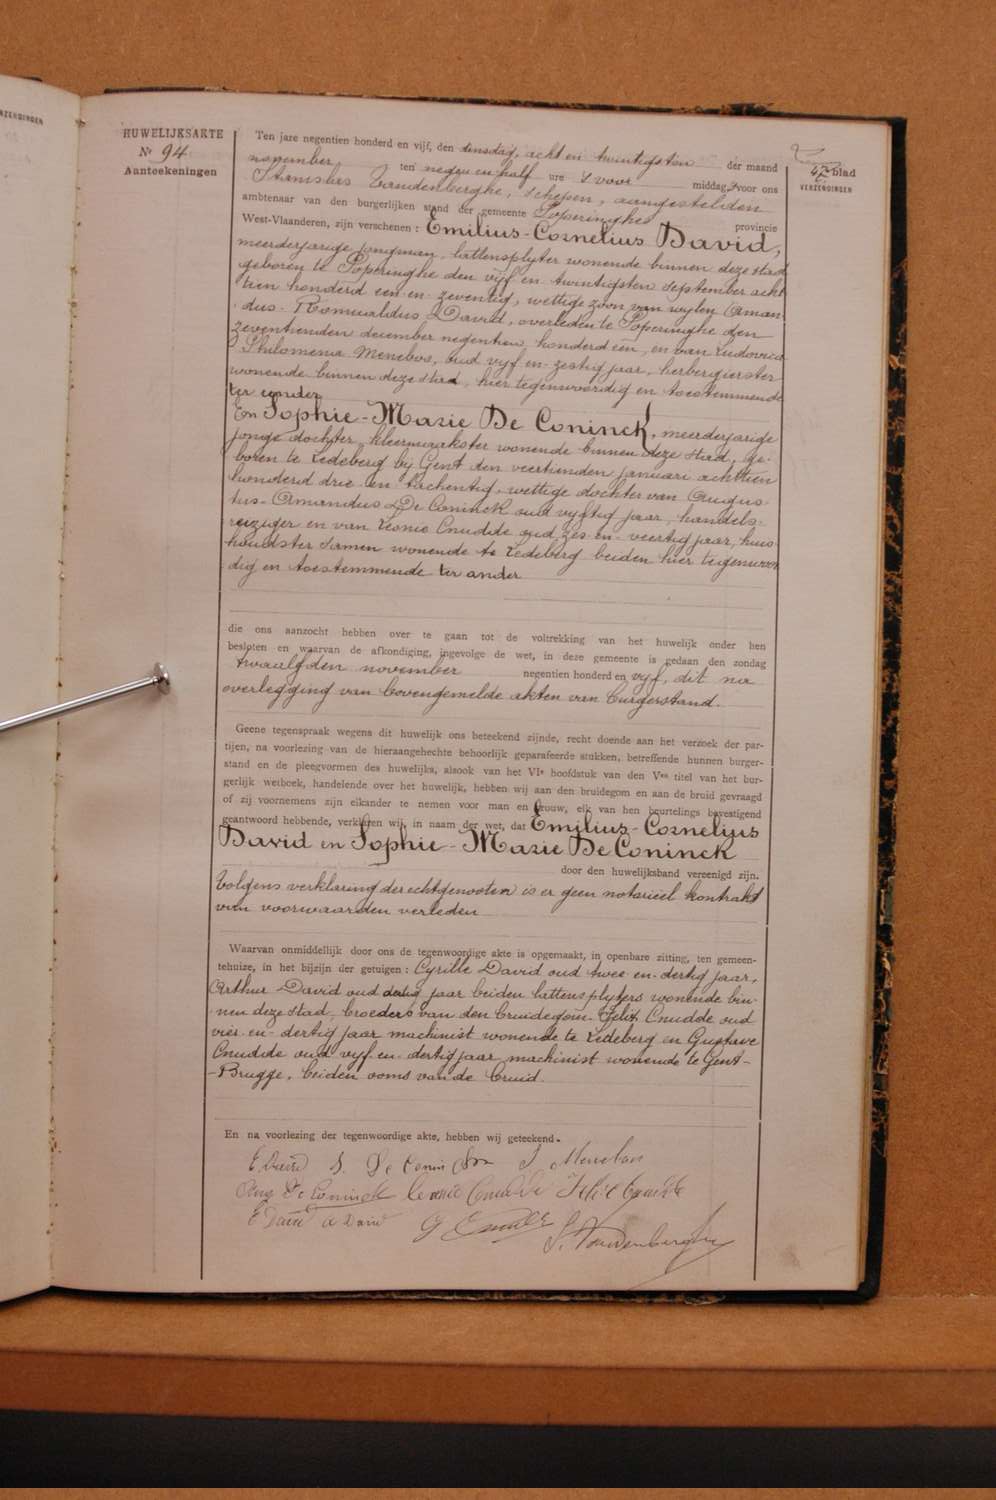 HUWELIJKSAKTE
Nr 94
Aanteekeningen
47 blad
VERZENDINGEN
Ten jare negentien honderd en vijf, den dinsdag, acht en twintigsten der maand
november, ten negen en half ure 's voor middag, voor ons
Stanislas Vandenberghe, schepen, aangestelden
ambtenaar van den burgerlijken stand der gemeente Poperinghe provincie
West-Vlaanderen, zijn verschenen : Emilius-Cornelius David,
meerderjarige jongman, lattensplyter wonende binnen deze stad
geboren te Poperinghe den vyf-en-twintigsten september acht
tien honderd een-en-zeventig, wettige zoon van wylen Aman
dus-Romualdus David, overleden te Poperinghe den
zeventienden december negentien honderd een, en van Ludovica
Philomena Menebos, oud vyf-en-zestig jaar, herbergierster
wonende binnen deze stad, hier tegenwoordig en toestemmende
ter eender
En Sophie-Marie De Coninck, meerderjarige
jonge dochter, kleermaakster wonende binnen deze stad, ge-
boren te Ledeberg bij Gent den veertienden januari achttien
honderd drie-en-tachentig, wettige dochter van Augus
tus-Amandus De Coninck oud vyftig jaar, handels-
reiziger en van Leonie Cnudde oud zes-en-veertig jaar, huis-
houdster samen wonende te Ledeberg beiden hier tegenwoor
dig en toestemmende ter ander
die ons aanzocht hebben over te gaan tot de voltrekking van het huwelijk onder hen
besloten en waarvan de afkondiging, ingevolge de wet, in deze gemeente is gedaan den zondag
twaalfden november negentien honderd en vyf, dit na
overlegging van bovengemelde akten van burgerstand.
Geene tegenspraak wegens dit huwelijk ons beteekend zijnde, recht doende aan het verzoek der par-
tijen, na voorlezing van de hieraangehechte behoorlijk geparafeerde stukken, betreffende hunnen burger-
stand en de pleegvormen des huwelijks, alsook van het VIe hoofdstuk van den Ven titel van het bur-
gerlijk wetboek, handelende over het huwelijk, hebben wij aan den bruidegom en aan de bruid gevraagd
of zij voornemens zijn elkander te nemen voor man en vrouw, elk van hen beurtelings bevestigend
geantwoord hebbende, verklaren wij, in naam der wet, dat Emilius-Cornelius
David en Sophie-Marie De Coninck
door den huwelijksband vereenigd zijn.
Volgens verklaring der echtgenooten is er geen notarieel kontrakt
van voorwaarden verleden
Waarvan onmiddellijk door ons de tegenwoordige akte is opgemaakt, in openbare zitting, ten gemeen-
tehuize, in het bijzijn der getuigen : Cyrille David oud twee-en-dertig jaar,
Arthur David oud dertig jaar beiden lattensplyters wonende bin-
nen deze stad, broeders van den bruidegom. Felix Cnudde oud
vier-en-dertig jaar machinist wonende te Ledeberg en Gustave
Cnudde oud vyf-en-dertig jaar, machinist wonende te Gent-
-Brugge, beiden ooms van de bruid.
En na voorlezing der tegenwoordige akte, hebben wij geteekend.
E David S. De Coninck L Menebos
Aug De Coninck Leonie Cnudde Felix Cnudde
C David A David G Cnudde
S. Vandenberghe